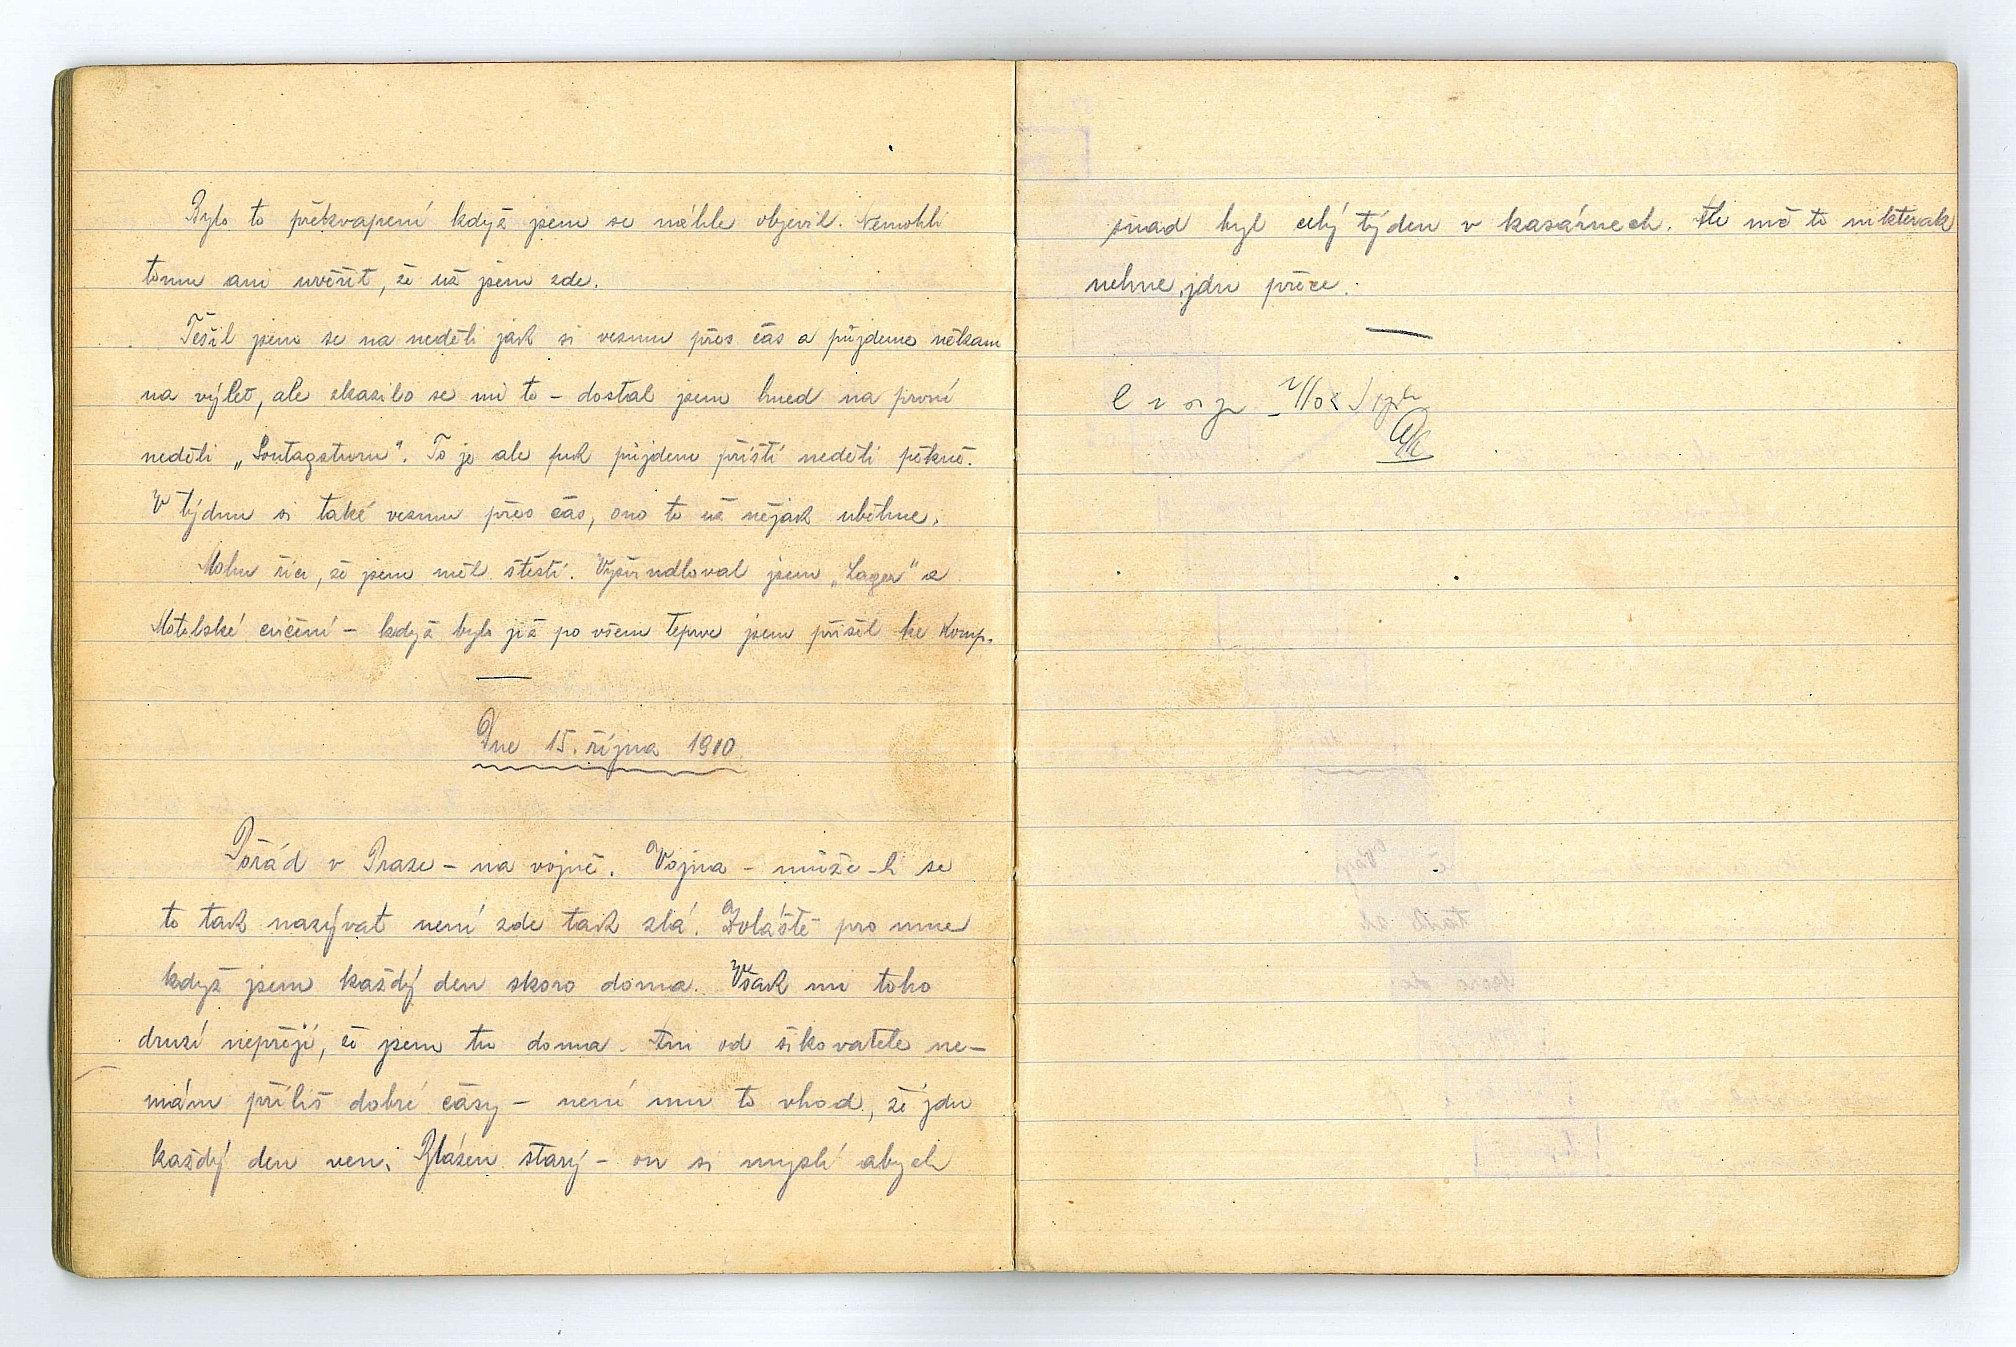 Bylo to překvapení když jsem se náhle objevil. Nemohli
tomu ani uvěřit, že už jsem zde.
Těšil jsem se na neděli jak si vezmu přes čas a půjdeme někam
na výlet, ale zkazilo se mi to – dostal jsem hned na první
neděli „Sontagsturn". To je ale fuk půjdem příští neděli pěkně.
V týdnu si také vezmu přes čas, ono to už nějak uběhne.
Mohu říci, že jsem měl štěstí. Vyšvindloval jsem „Lager" a
Motolské cvičení – když bylo již po všem teprve jsem přišel ke Komp.
Dne 15. října 1910
Pořád v Praze – na vojně. Vojna – může-li se
to tak nazývat není zde tak zlá. Zvláště pro mne
když jsem každý den skoro doma. Však mi toho
druzí nepřejí, že jsem tu doma. Ani od šikovatele ne-
mám příliš dobré časy – není mu to vhod, že jdu
každý den ven. Blázen starý – on si myslí abych
snad byl celý týden v kasárnech. Ale mě to nikterak
nehne, jdu přece.